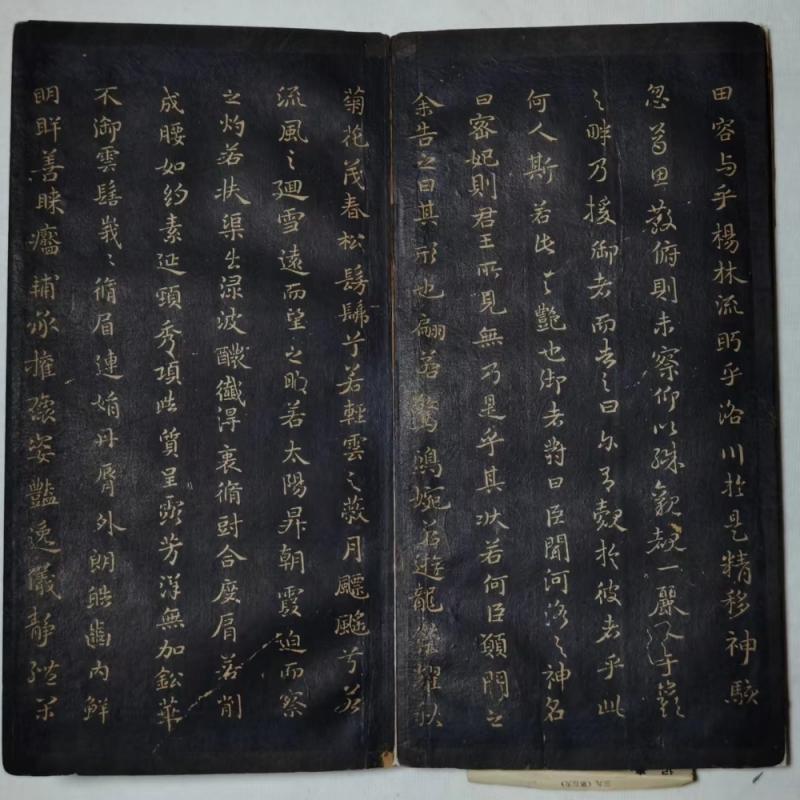 田容与乎楊林流眄乎洛川於是精移神駭
忽焉思散俯則未察仰以殊觀覩一麗人于巖
之畔乃援御者而告之曰尓有覿於彼者乎此
何人斯若此之艷也御者對曰臣聞河洛之神名
曰宓妃則君王所見無乃是乎其狀若何臣願聞之
余告之曰其形也翩若驚鴻婉若遊龍榮耀秋
菊花茂春松髣髴兮若輕雲之蔽月飄颻兮若
流風之廻雪遠而望之皎若太陽昇朝霞迫而察
之灼若扶渠出淥波醲纖得衷脩短合度肩若削
成腰如約素延頸秀項皓質呈露芳澤無加鉛華
不御雲髻峩〻脩眉連娟丹脣外朗皓齒內鮮
明眸善睞靨輔承權瓌姿豔逸儀靜體閑